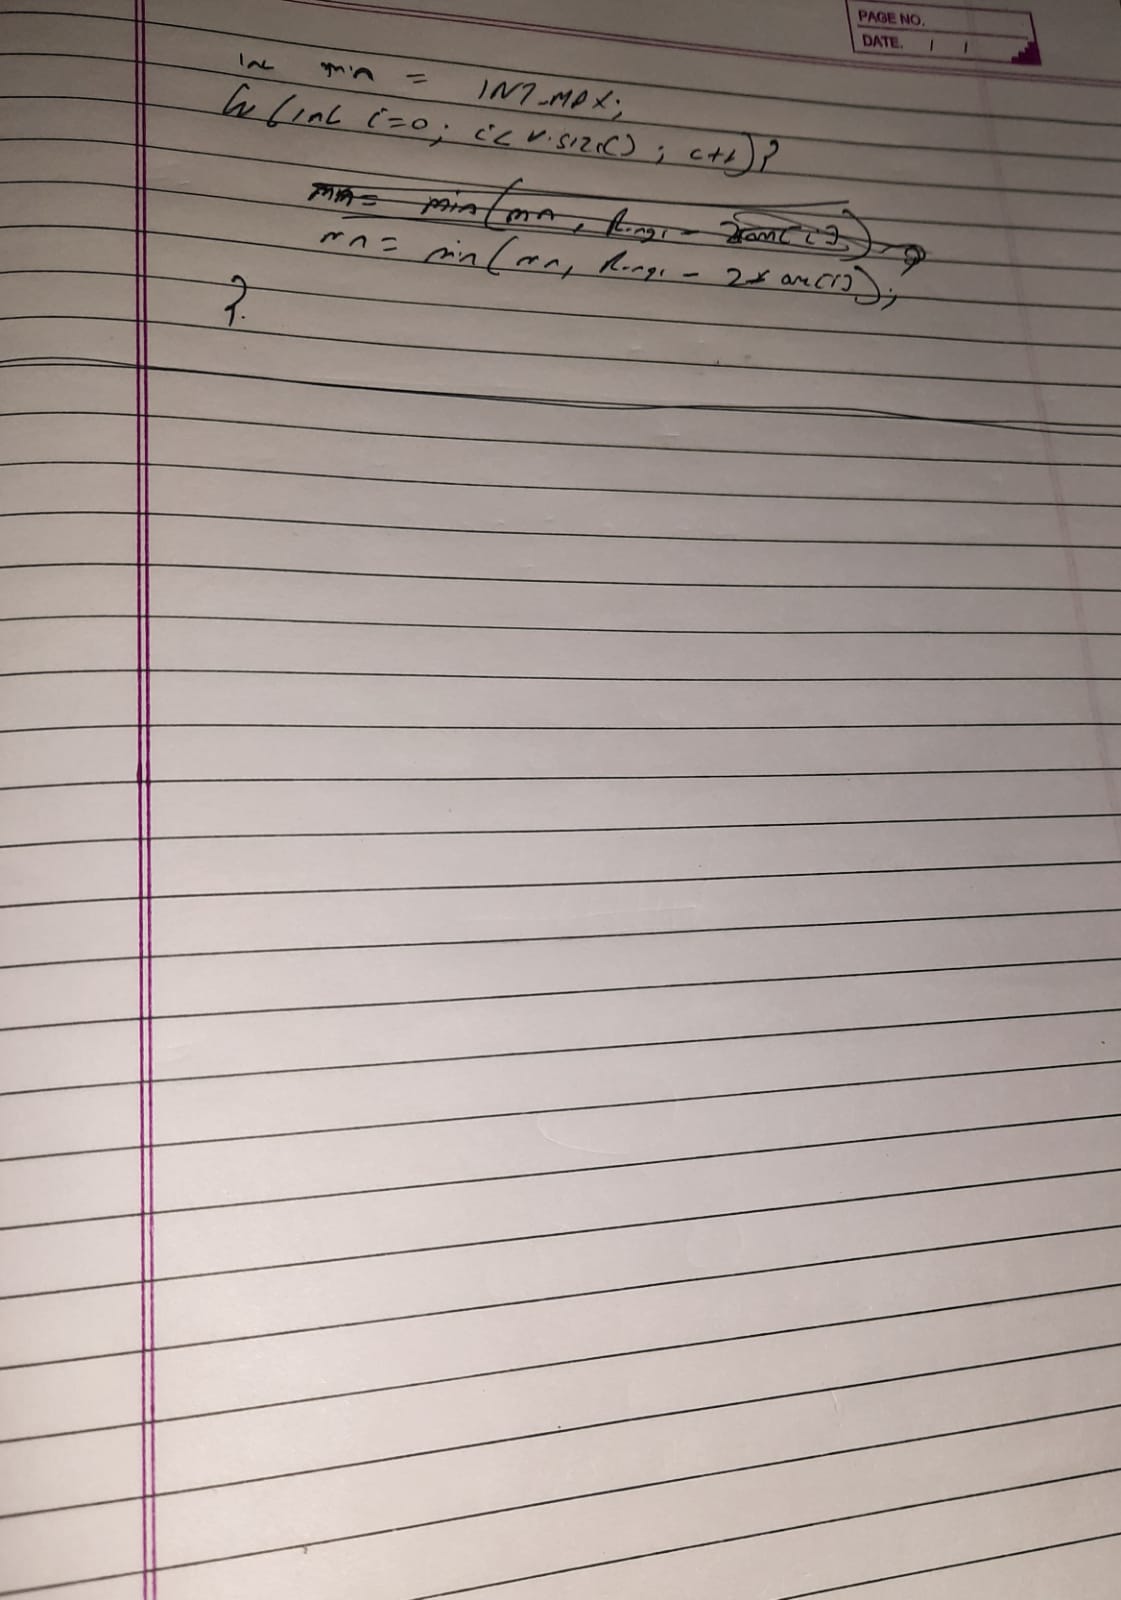 PAGE NO.
DATE. / /
int min = INT_MAX;
for (int i=0; i< v.size(); i++){
mn= min(mn, Range - 2*arr[i]);
mn= min(mn, Range - 2* arr[i]);
}